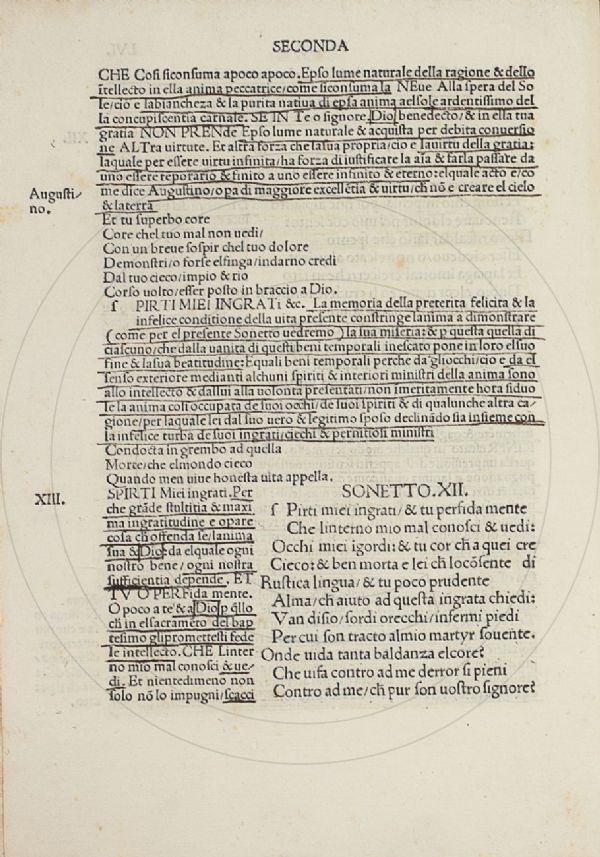 SECONDA
CHE Cosi siconsuma apoco apoco. Epso lume naturale della ragione & dello
ītellecto in ella anima peccatrice/come siconsuma la NEue Alla spera del So
le/cio e labianchеza & la purita natiua di epsa anima aelsole ardentissimo del
la concupiscentia carnale. SE IN Te o signore, Dio benedecto/& in ella tua
gratia NON PRENde Epso lume naturale & acquista per debita conuersio
ne ALTra uirtute. Et altra forza che lasua propria/cio e lauirtu della gratia:
laquale per essere uirtu infinita/ha forza di iustificare la aīa & farla passare da
uno essere temporario & finito a uno essere infinito & eterno: elquale acto e/co
me dice Augustino/opa di maggiore excellētia & uirtu/ch nō e creare el cielo
& laterra
Augusti/
no.
Et tu superbo core
Core chel tuo mal non uedi/
Con un breue sospir chel tuo dolore
Demonstri/o forse elfinga/indarno credi
Dal tuo cieco/impio & rio
Corso uolto/esser posto in braccio a Dio.
s PIRTI MIEI INGRATi &c. La memoria della preterita felicita & la
infelice conditione della uita presente constringe lanima a dimonstrare
(come per el presente Sonetto uedremo) la sua miseria: & p questa quella di
ciascuno/che dalla uanita di questi beni temporali inescato pone in loro elsuo
fine & lasua beatitudine: Equali beni temporali perche da gliocchi/cio e da el
senso exteriore medianti alchuni spiriti & interiori ministri della anima sono
allo intellecto & dallui alla uolonta presentati/non īmeritamente hora siduo
le la anima cosi occupata de suoi occhi/de suoi spiriti & di qualunche altra ca
gione/per laquale lei dal suo uero & legitimo sposo declinādo sia insieme con
la infelice turba de suoi ingrati/ciechi & pernitiosi ministri
Condocta in grembo ad quella
Morte/che elmondo cieco
Quando men uiue honesta uita appella.
XIII.
SPIRTI Miei ingrati. Per
che grāde stultitia & maxi
ma ingratitudine e opare
cosa ch offenda se/lanima
sua & Dio: da elquale ogni
nostro bene/ogni nostra
sufficientia depende. ET
TVO PERfida mente.
O poco a te & a Dio p qllo
ch in elsacramēto del bap
tesimo glipromettesti fede
le intellecto. CHE Linter
no mio mal conosci & ue/
di. Et nientedimeno non
solo nō lo impugni/scacci
SONETTO.XII.
s Pirti miei ingrati/& tu perfida mente
Che linterno mio mal conosci & uedi:
Occhi miei igordi: & tu cor ch a quei cre
Cieco: & ben morta e lei ch locōsente di
Rustica lingua/& tu poco prudente
Alma/ch aiuto ad questa ingrata chiedi:
Van disio/sordi orecchi/infermi piedi
Per cui son tracto almio martyr souente.
Onde uida tanta baldanza elcore?
Che uisa contro ad me derror si pieni
Contro ad me/ch pur son uostro signore?